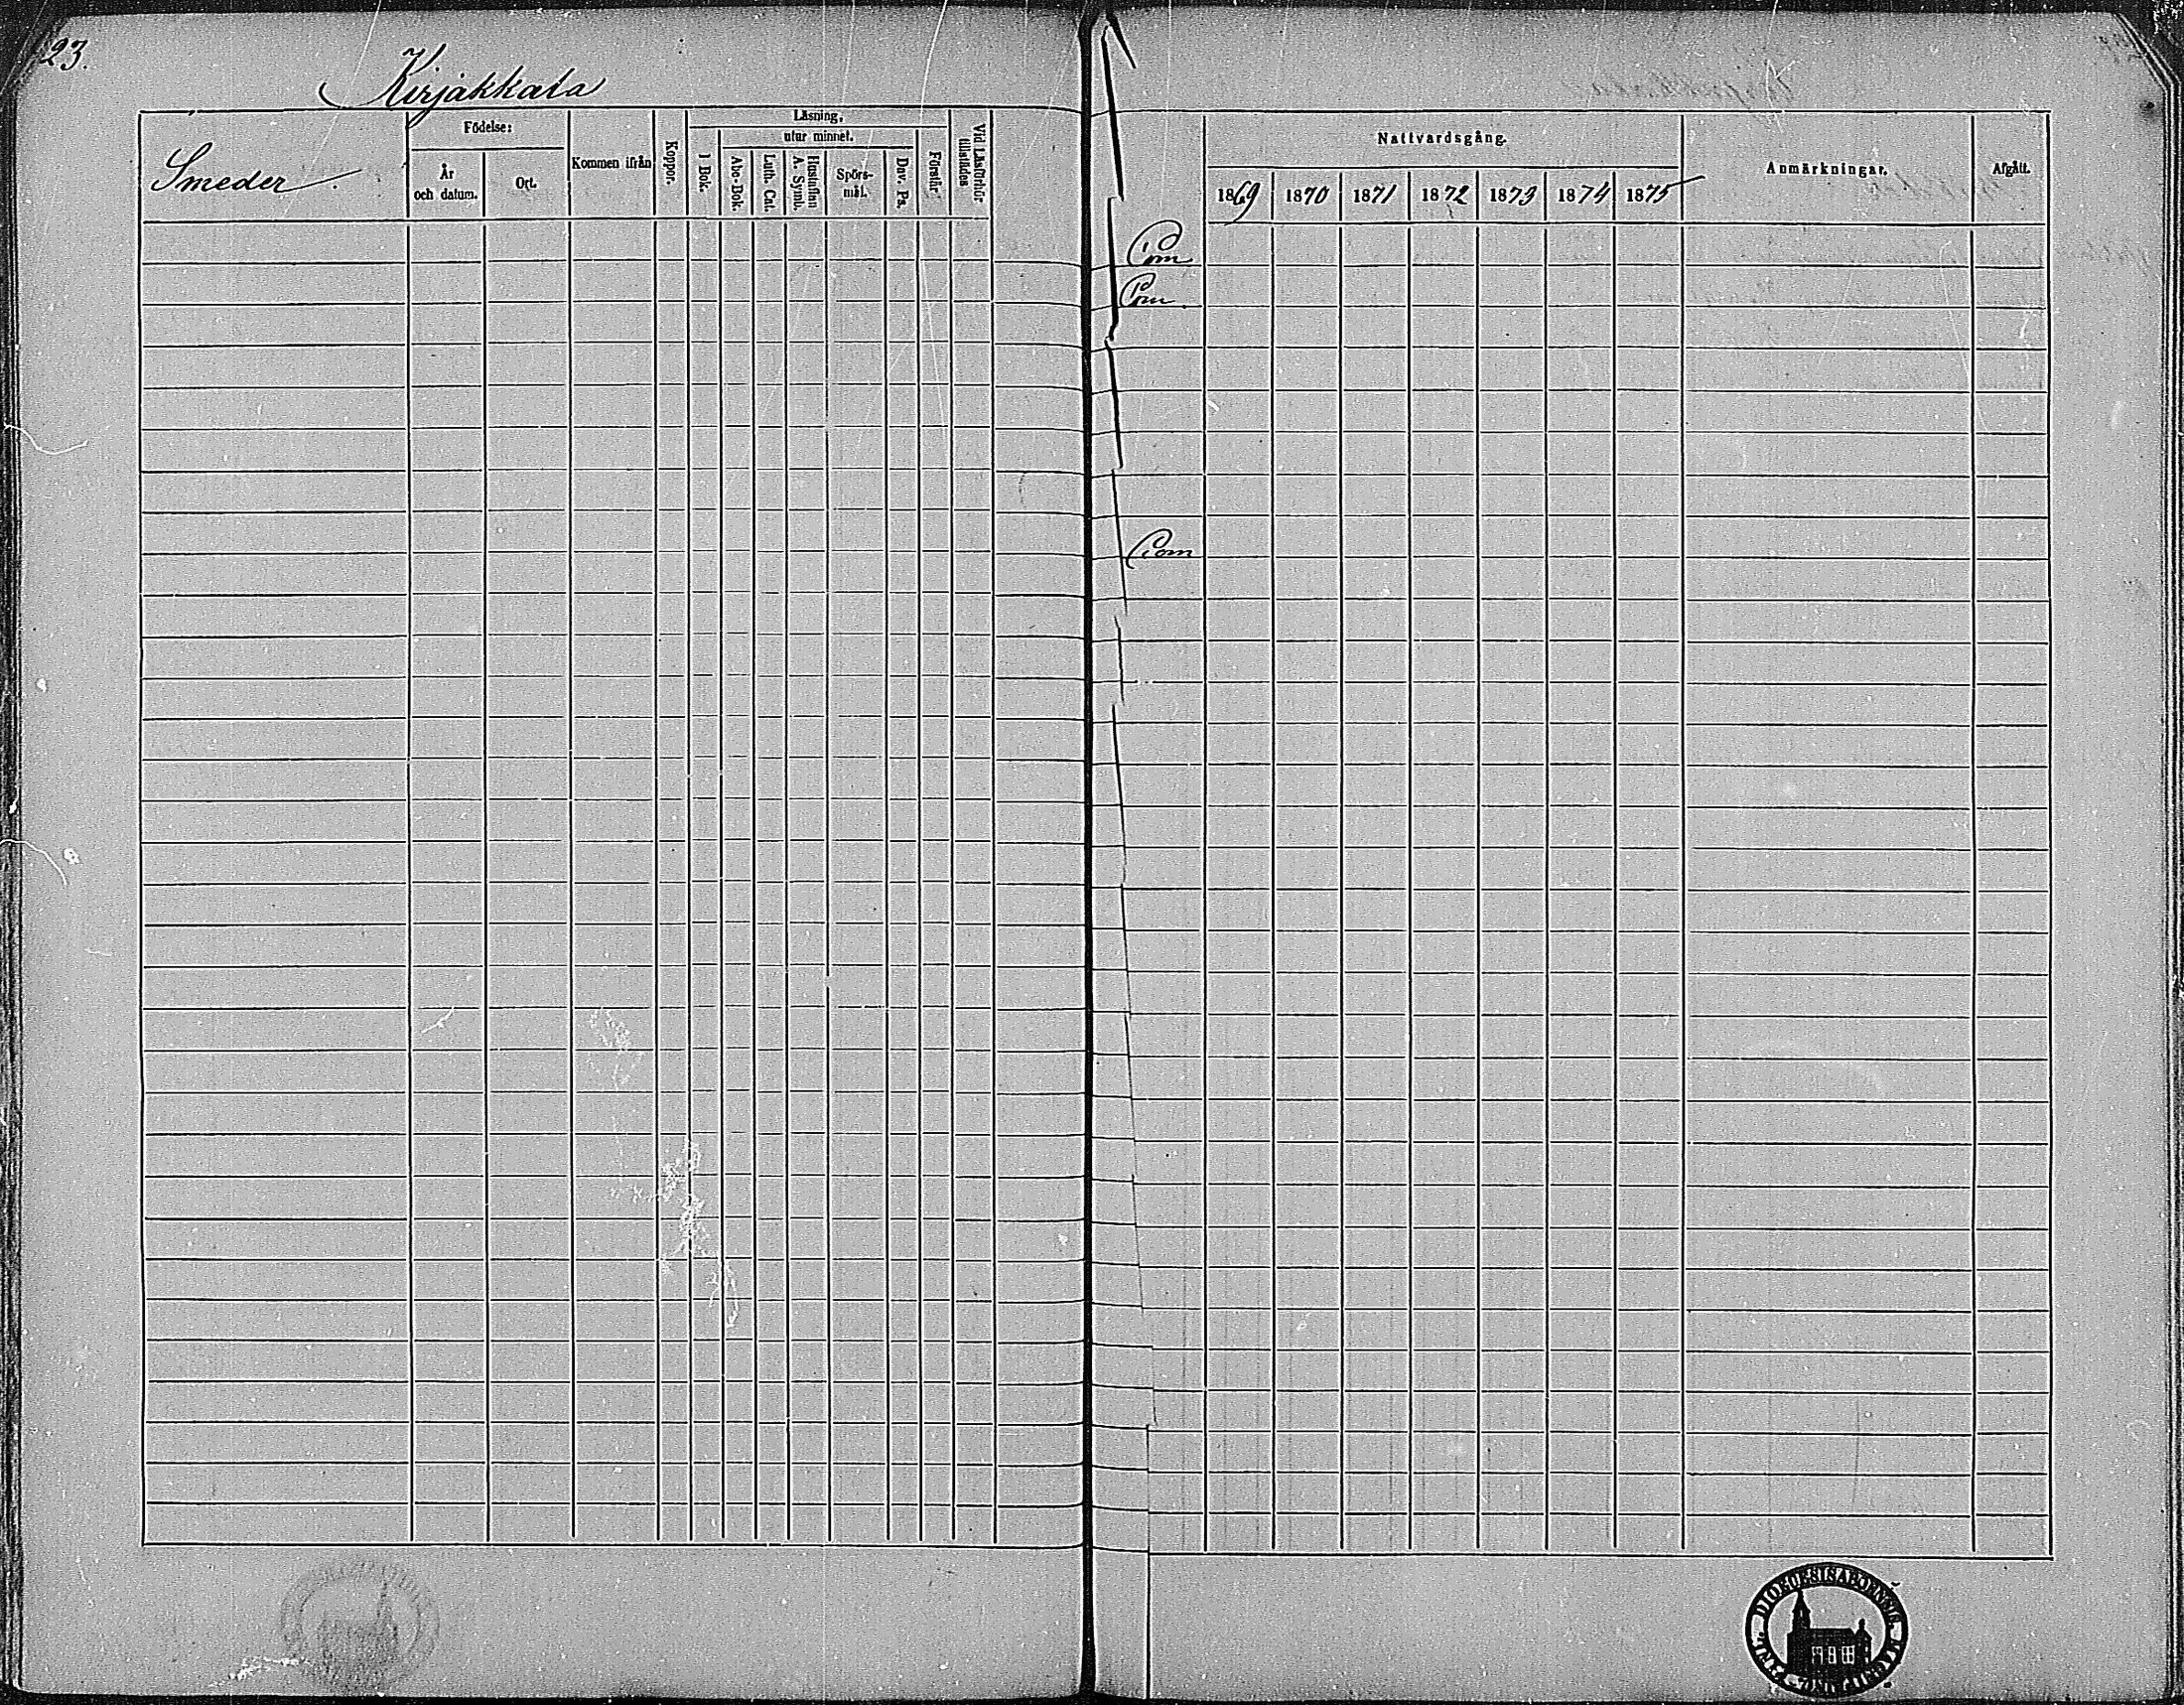 23.
Kirjakkala
Smeder.
Födelse:
År och datum.
Ort.
Kommen ifrån
Koppor.
Läsning,
I Bok.
utur minnet.
Abc-Bok.
Luth. Cat.
Hustaflan A. Symb.
Spörs-mål.
Dav. Ps.
Förstår
Vid Läsförhör tillstädes
Nattvardsgång.
1869 1870 1871 1872 1873 1874 1875
Anmärkningar.
Afgått.
Com
Com
Com